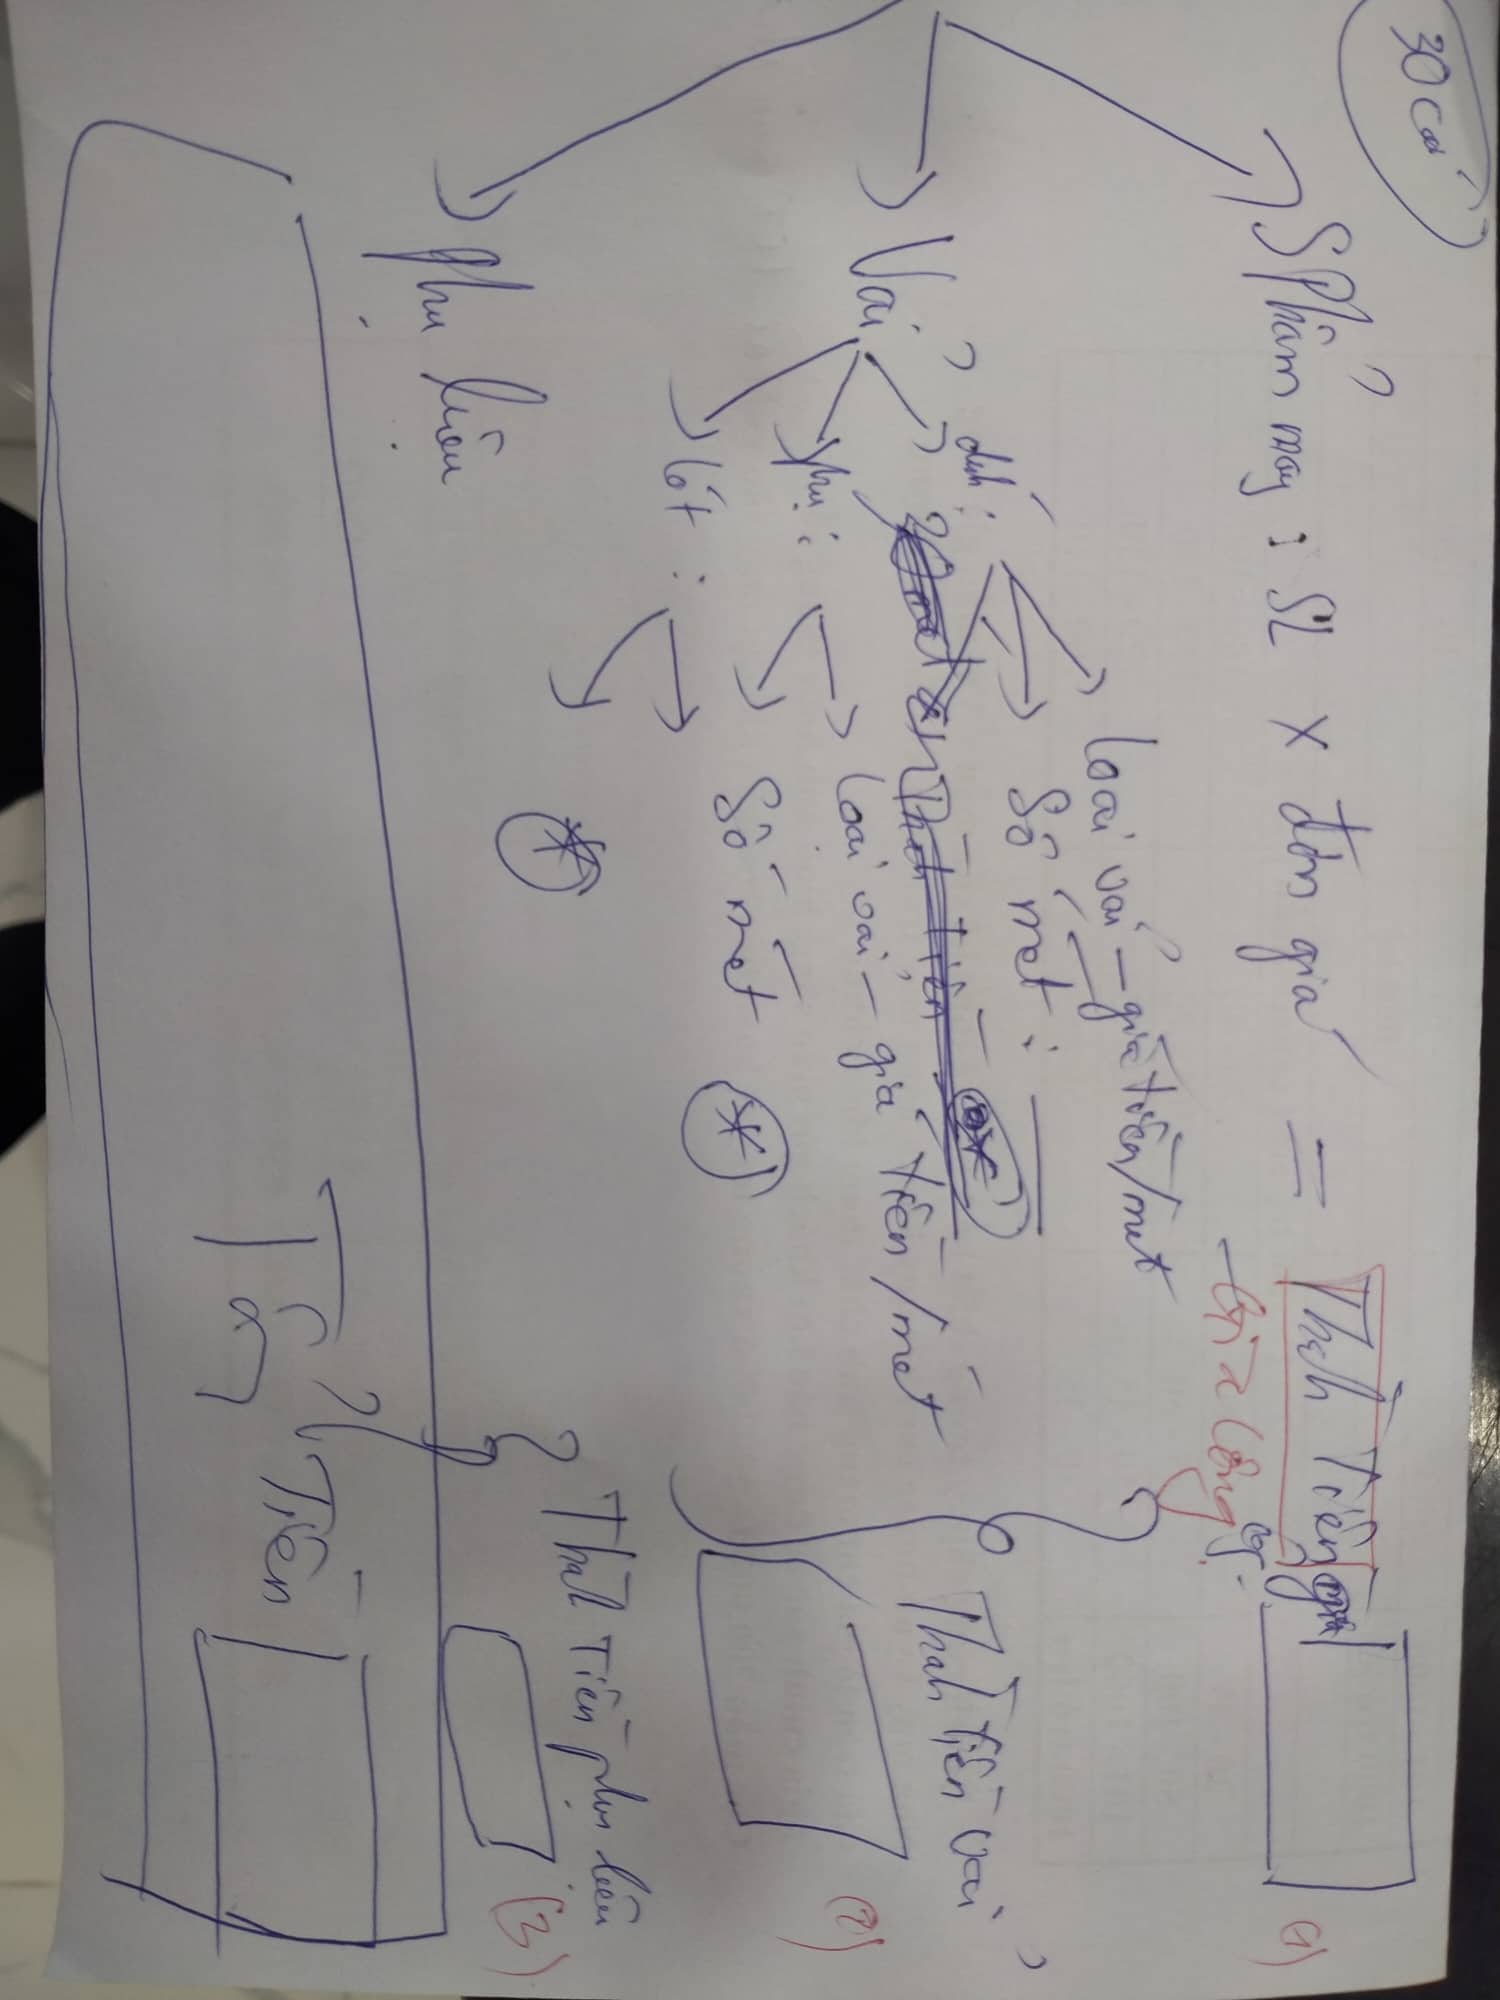 30 cái
SPhẩm may : SL x đơn giá = Thành Tiền
- Gia công
(1)
Vải
chính :
loại vải - giá tiền/mét
Số mét :
Thành tiền vải
(2)
phụ :
loại vải - giá tiền/mét
Số mét
lót :
Phụ liệu
Thành Tiền phụ liệu
(3)
Tổng Tiền